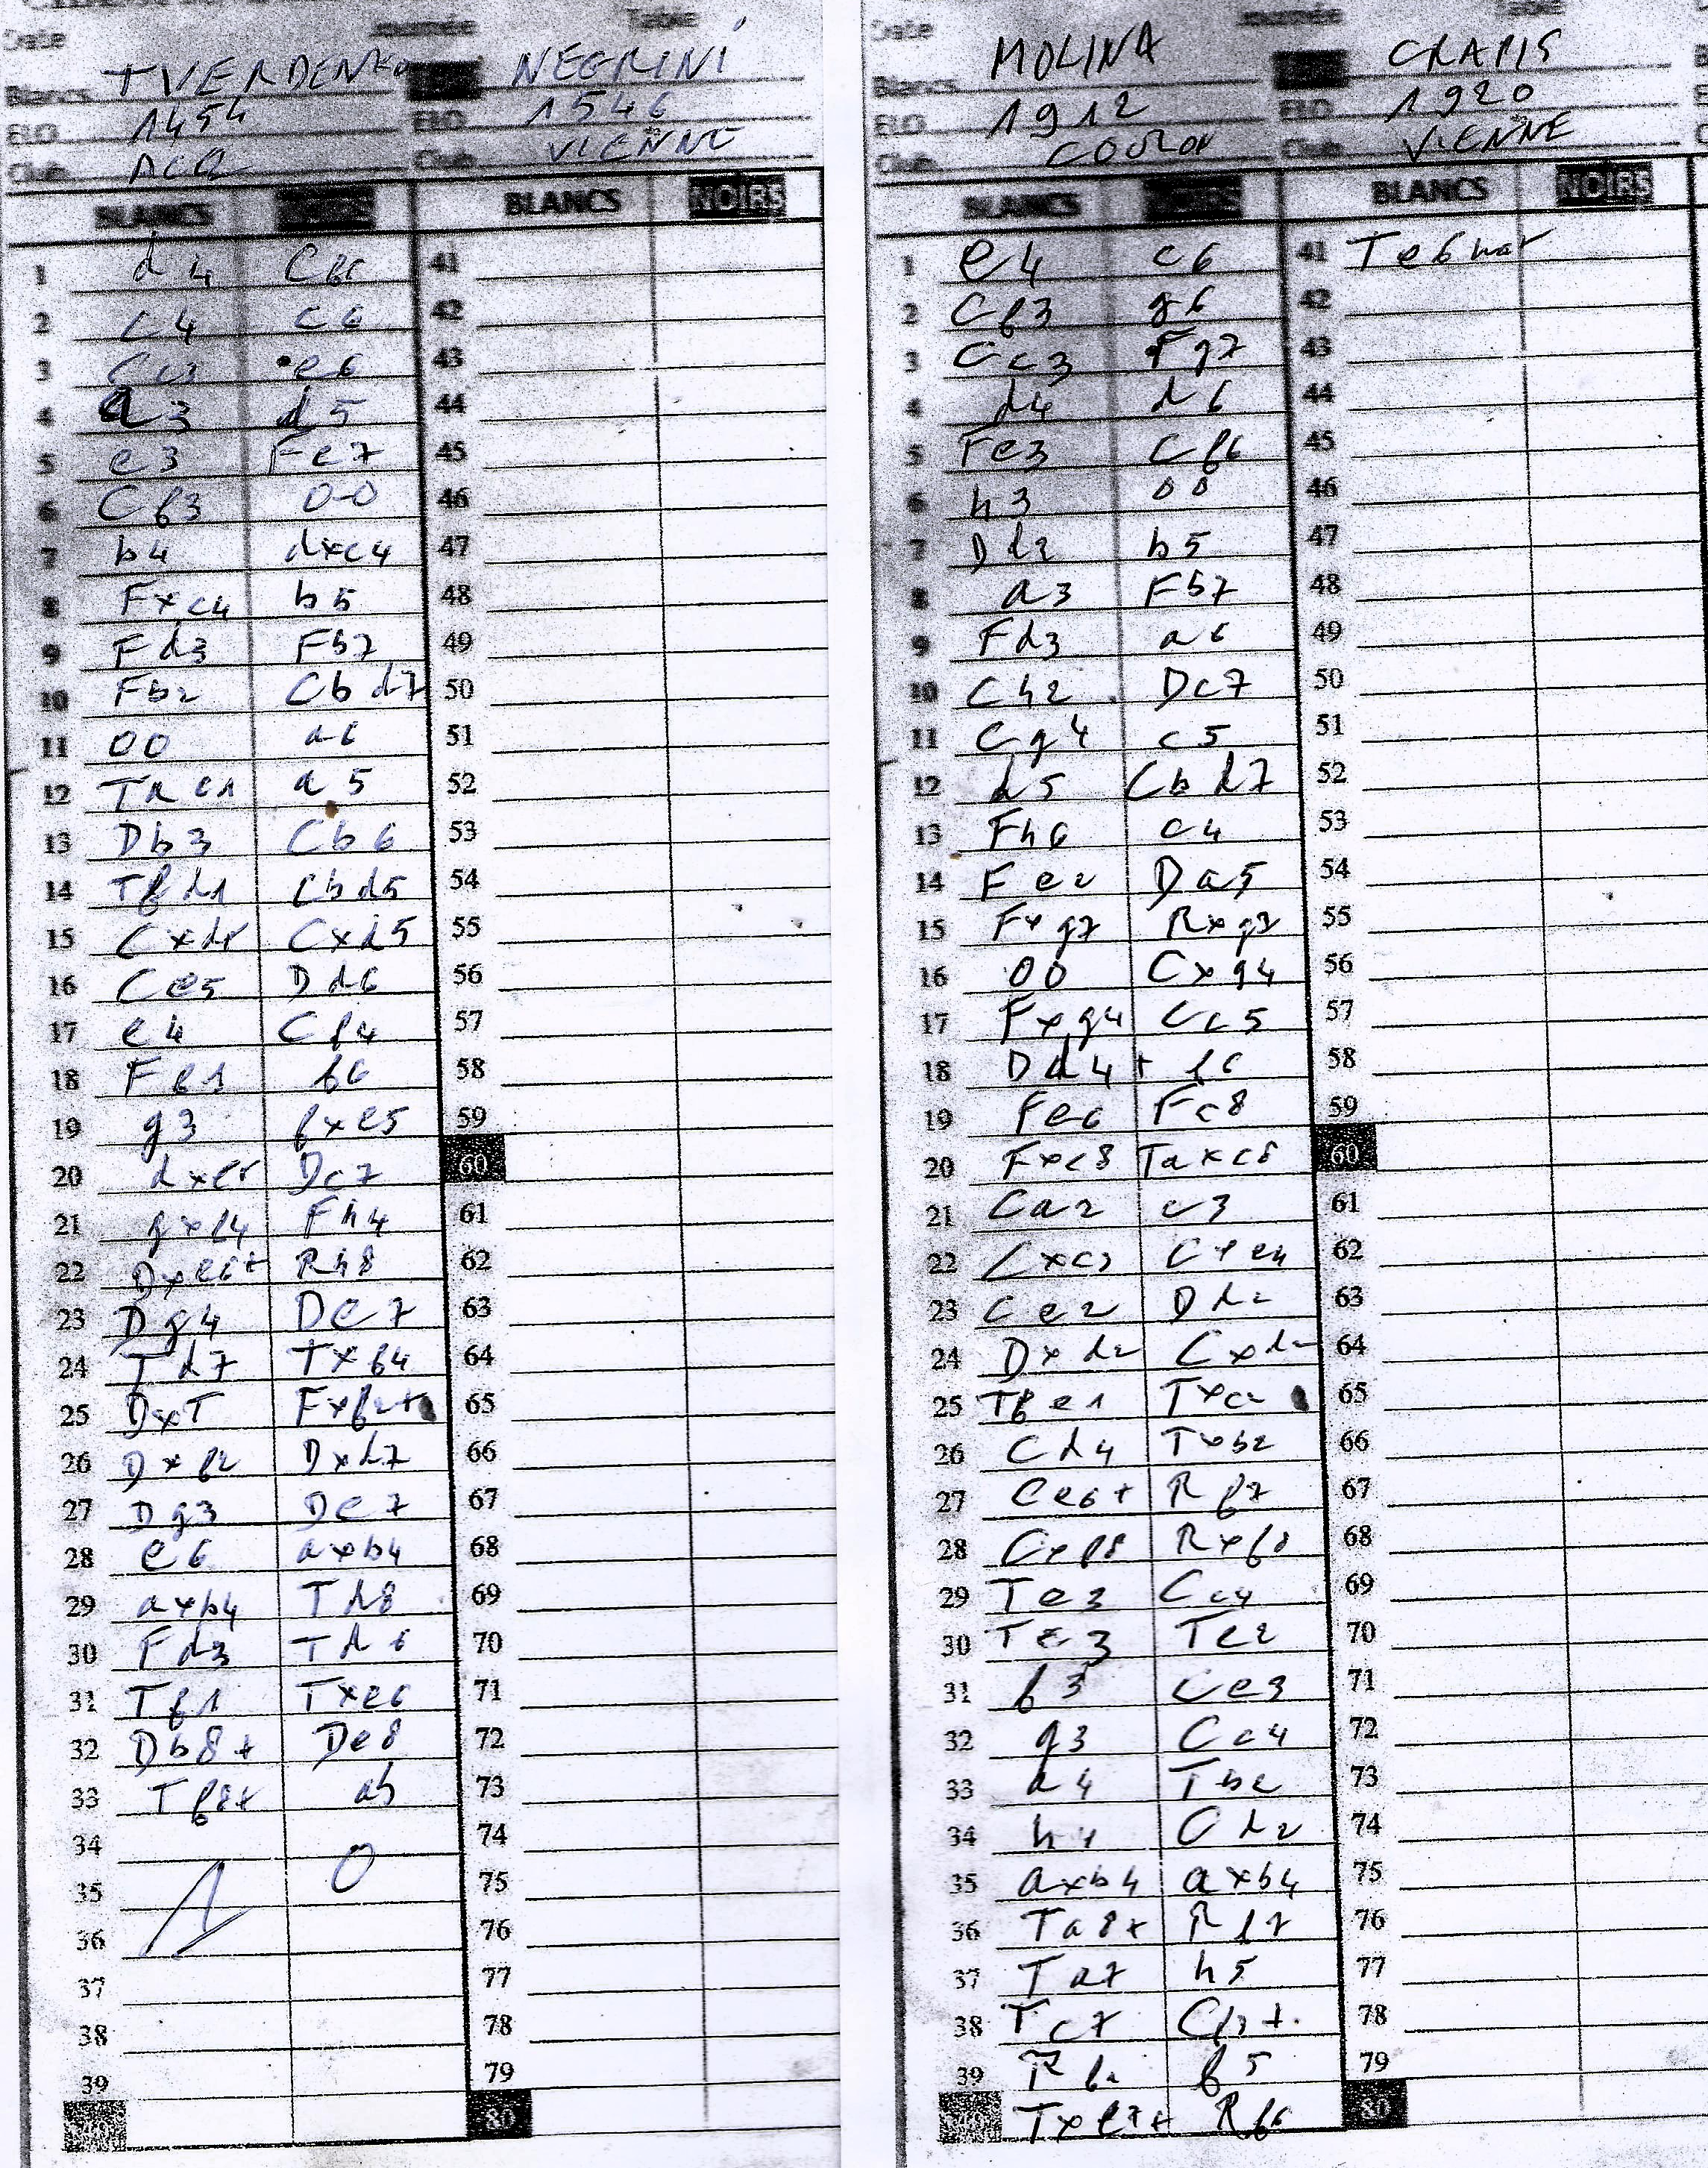 Date Journée Table
Blancs TVERDENKO NEGRINI
ELO 1454 ELO 1546
Club Club VIENNE
BLANCS NOIRS BLANCS NOIRS
1 d4 Cf6 41
2 c4 c6 42
3 Cc3 e6 43
4 a3 d5 44
5 e3 Fe7 45
6 Cf3 0-0 46
7 b4 dxc4 47
8 Fxc4 b5 48
9 Fd3 Fb7 49
10 Fb2 Cbd7 50
11 00 a6 51
12 Tac1 a5 52
13 Db3 Cb6 53
14 Tfd1 Cbd5 54
15 Cxd5 Cxd5 55
16 Ce5 Dd6 56
17 e4 Cf4 57
18 Ff1 f6 58
19 g3 fxe5 59
20 dxe5 Dc7 60
21 gxf4 Fh4 61
22 Dxe6+ Rh8 62
23 Dg4 De7 63
24 Td7 Txf4 64
25 DxT Fxf2+ 65
26 Dxf2 Dxd7 66
27 Dg3 De7 67
28 e6 axb4 68
29 axb4 Td8 69
30 Fd3 Td6 70
31 Tf1 Txe6 71
32 Db8+ De8 72
33 Tf8+ ab 73
34 74
35 1 0 75
36 76
37 77
38 78
39 79
80
Date Journée Table
Blancs MOLINA CRAPIS
ELO 1912 ELO 1920
Club COUZON Club VIENNE
BLANCS NOIRS BLANCS NOIRS
1 e4 c6 41 Te6 mat
2 Cf3 g6 42
3 Cc3 Fg7 43
4 d4 d6 44
5 Fe3 Cf6 45
6 h3 00 46
7 Dd2 b5 47
8 a3 Fb7 48
9 Fd3 a6 49
10 Ch2 Dc7 50
11 Cg4 c5 51
12 d5 Cbd7 52
13 Fh6 c4 53
14 Fe2 Da5 54
15 Fxg7 Rxg7 55
16 00 Cxg4 56
17 Fxg4 Cc5 57
18 Dd4+ f6 58
19 Fe6 Fc8 59
20 Fxc8 Taxc8 60
21 Ca2 c3 61
22 Cxc3 Cxe4 62
23 Ce2 Dd2 63
24 Dxd2 Cxd2 64
25 Tfe1 Txc2 65
26 Cd4 Txb2 66
27 Ce6+ Rf7 67
28 Cxf8 Rxf8 68
29 Te3 Cc4 69
30 Tc3 Te2 70
31 f3 Ce3 71
32 g3 Cc4 72
33 a4 Tb2 73
34 h4 Cd2 74
35 axb4 axb4 75
36 Ta8+ Rf7 76
37 Ta7 h5 77
38 Tc7 Cf3+ 78
39 Rf2 f5 79
Txe7+ Rf6 80